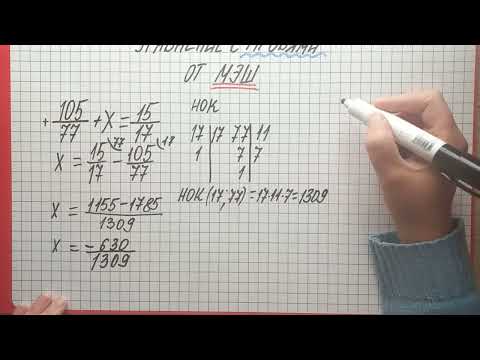 УРАВНЕНИЕ С ДРОБЯМИ
ОТ МЭШ
+ 105/77 + X = 15/17
X = 15/17 \77 - 105/77 \17
X = 1155-1785/1309
X = -630/1309
НОК
17 | 17 77 | 11
1 | 7 | 7
1
НОК (17; 77) = 17·11·7 = 1309